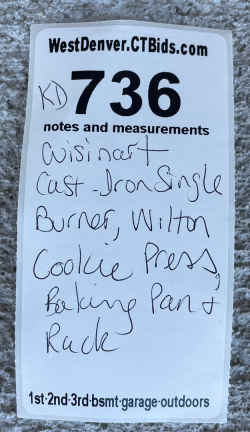 WestDenver.CTBids.com
KD 736
notes and measurements
Cuisinart
Cast-Iron Single
Burner, Wilton
Cookie Press,
Baking Pan +
Rack
1st·2nd·3rd·bsmt·garage·outdoors